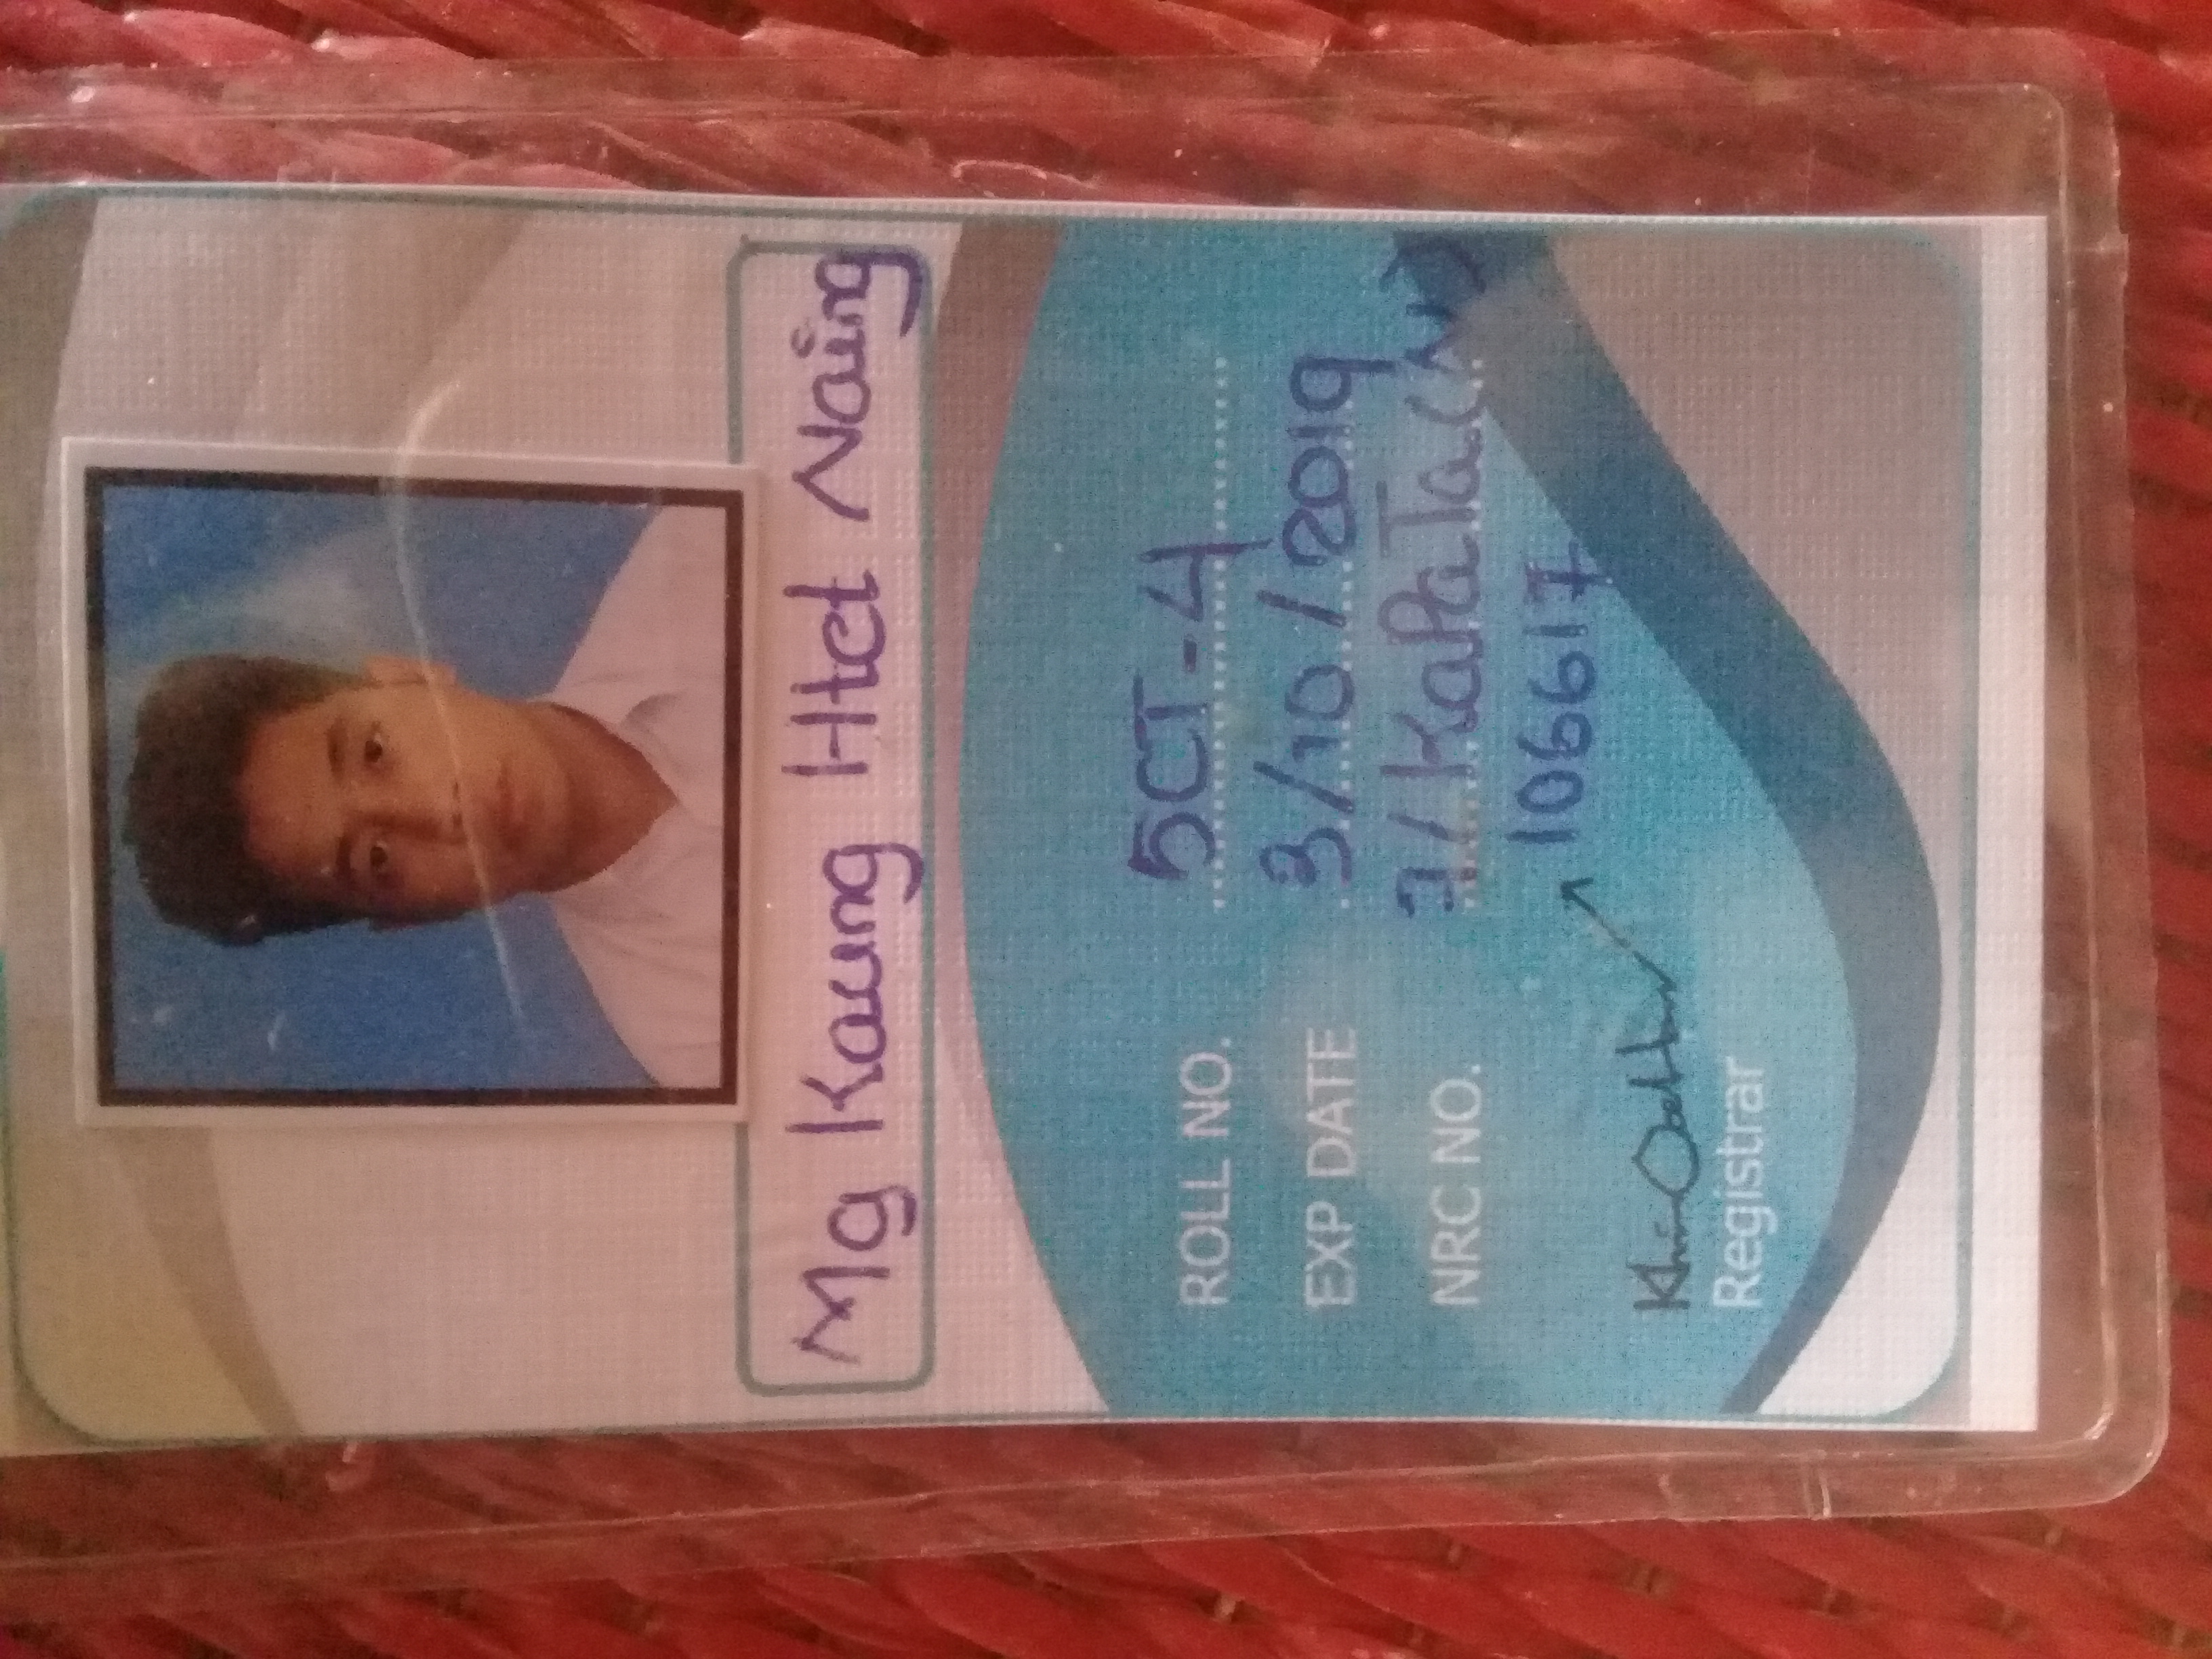 Mg Kaung Htet Naing
ROLL NO. 5CT-4
EXP DATE 3/10/2019
NRC NO. 7/KaPaTa(N)
106617
Registrar